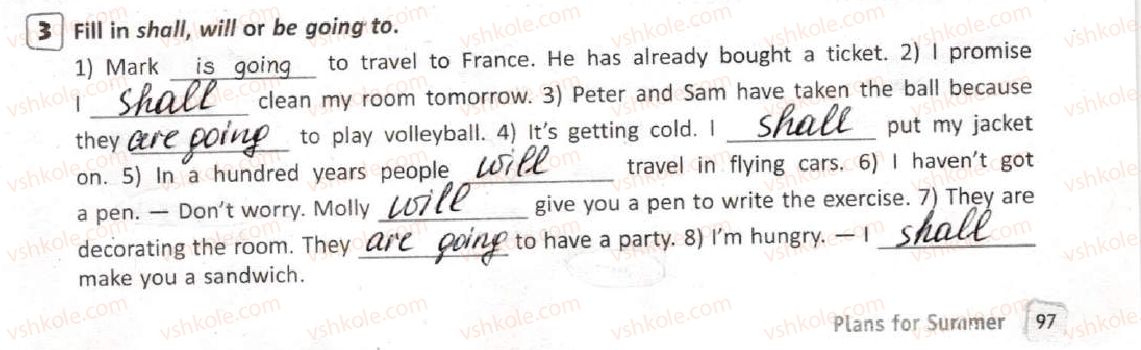 3 Fill in shall, will or be going to.
1) Mark is going to travel to France. He has already bought a ticket. 2) I promise
I shall clean my room tomorrow. 3) Peter and Sam have taken the ball because
they are going to play volleyball. 4) It's getting cold. I shall put my jacket
on. 5) In a hundred years people will travel in flying cars. 6) I haven't got
a pen. — Don't worry. Molly will give you a pen to write the exercise. 7) They are
decorating the room. They are going to have a party. 8) I'm hungry. — I shall
make you a sandwich.
Plans for Summer 97
vshkole.com